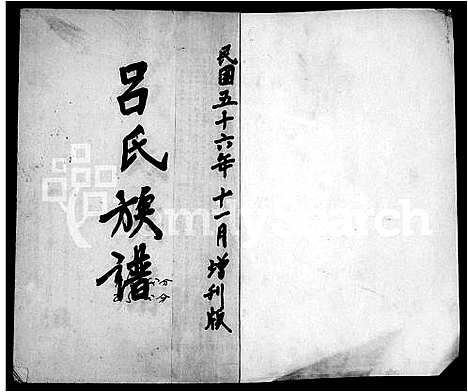 民国五十六年十一月增刊版
吕氏族譜
FamilySearch